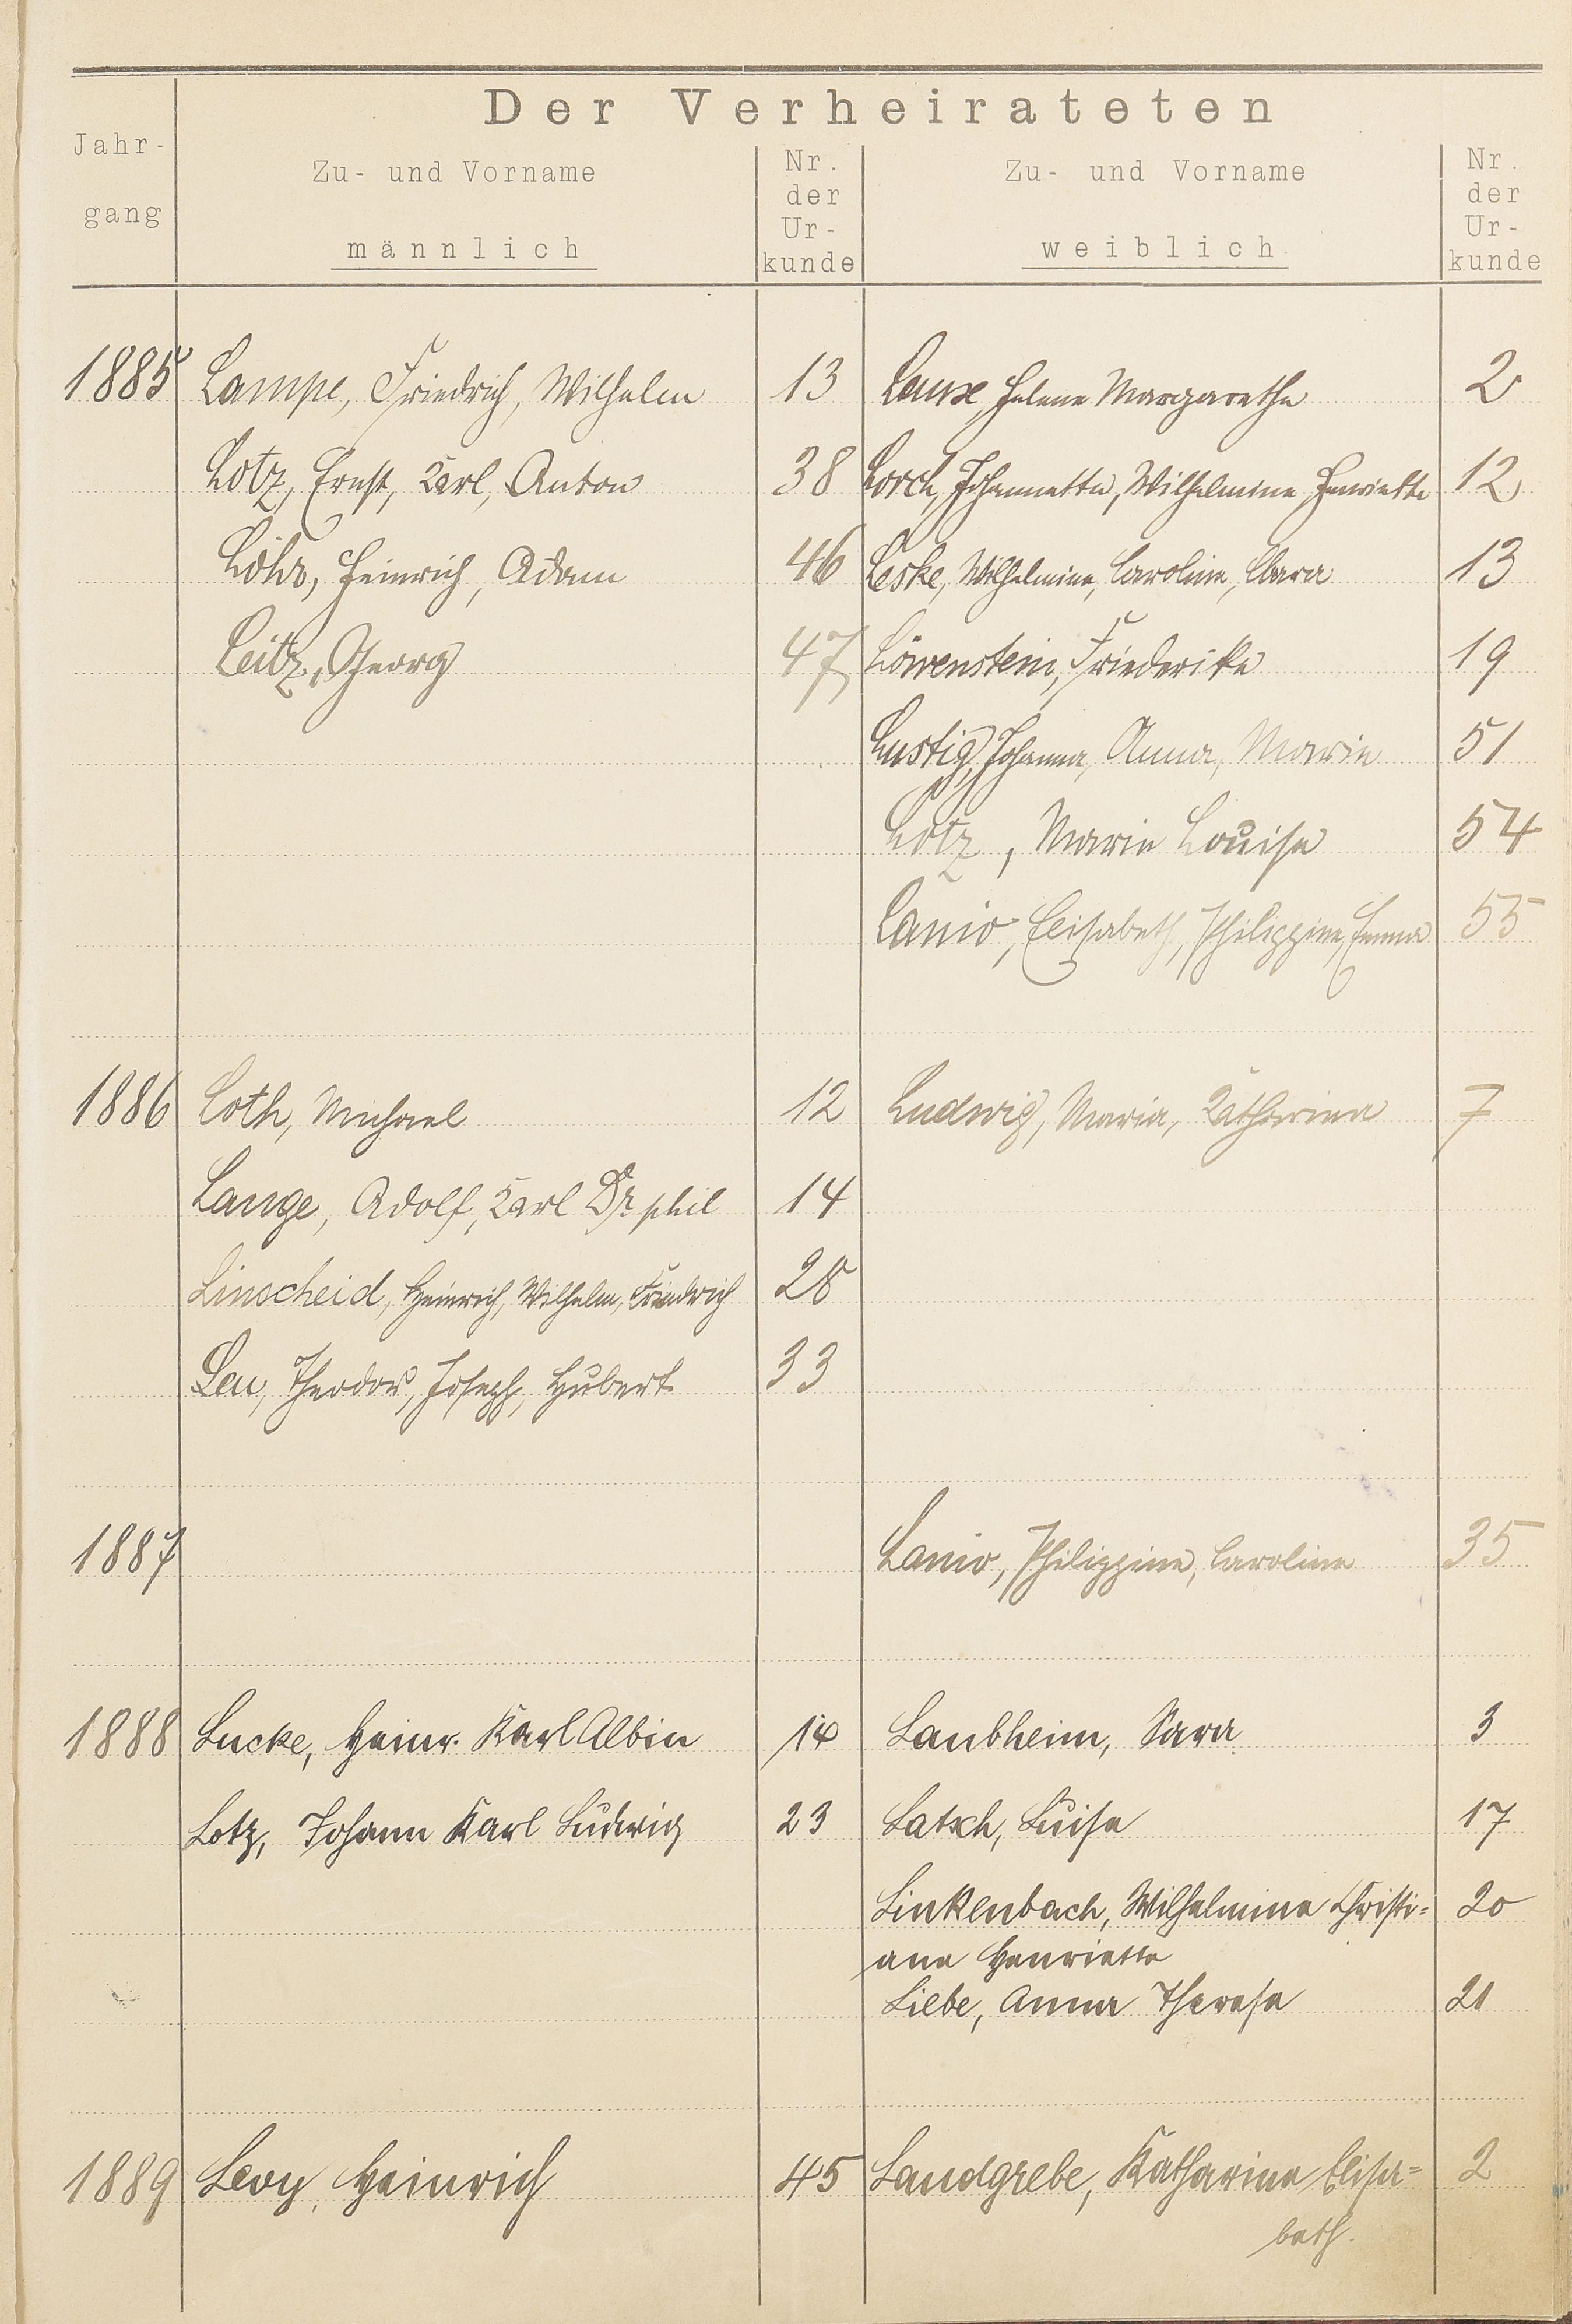 Der Verheirateten
Jahr-
gang
Zu- und Vorname
männlich
Nr.
der
Ur-
kunde
Zu- und Vorname
weiblich
Nr.
der
Ur-
kunde
1885 Lampe, Friedrich, Wilhelm 13 Laux, Helene Margarethe 2
Lotz, Ernst, Karl, Anton 38 Lorch, Johannette, Wilhelmine Henriette 12
Löhr, Heinrich, Adam 46 Leske, Wilhelmine, Caroline, Clara 13
Leitz, Georg 47 Löwenstein, Friederike 19
Lustig, Johanna, Anna, Marie 51
Lotz, Marie Louise 54
Lanio, Elisabeth, Philippine, Emma 55
1886 Loth, Michael 12 Ludwig, Maria, Katharina 7
Lange, Adolf, Karl Dr phil 14
Linscheid, Heinrich, Wilhelm, Friedrich
Leu, Theodor, Joseph, Hubert 33
1887 Lanio, Philippine, Caroline 35
1888 Lucke, Heinr. Karl Albin 14 Laubheim, Sara 3
Lotz, Johann Karl Ludwig 23 Latsch, Luise 17
Linkenbach, Wilhelmine Christi= 20
ane Henriette
Liebe, Anna Therese 21
1889 Levy, Heinrich 45 Landgrebe, Katharine Elisa= 2
beth.